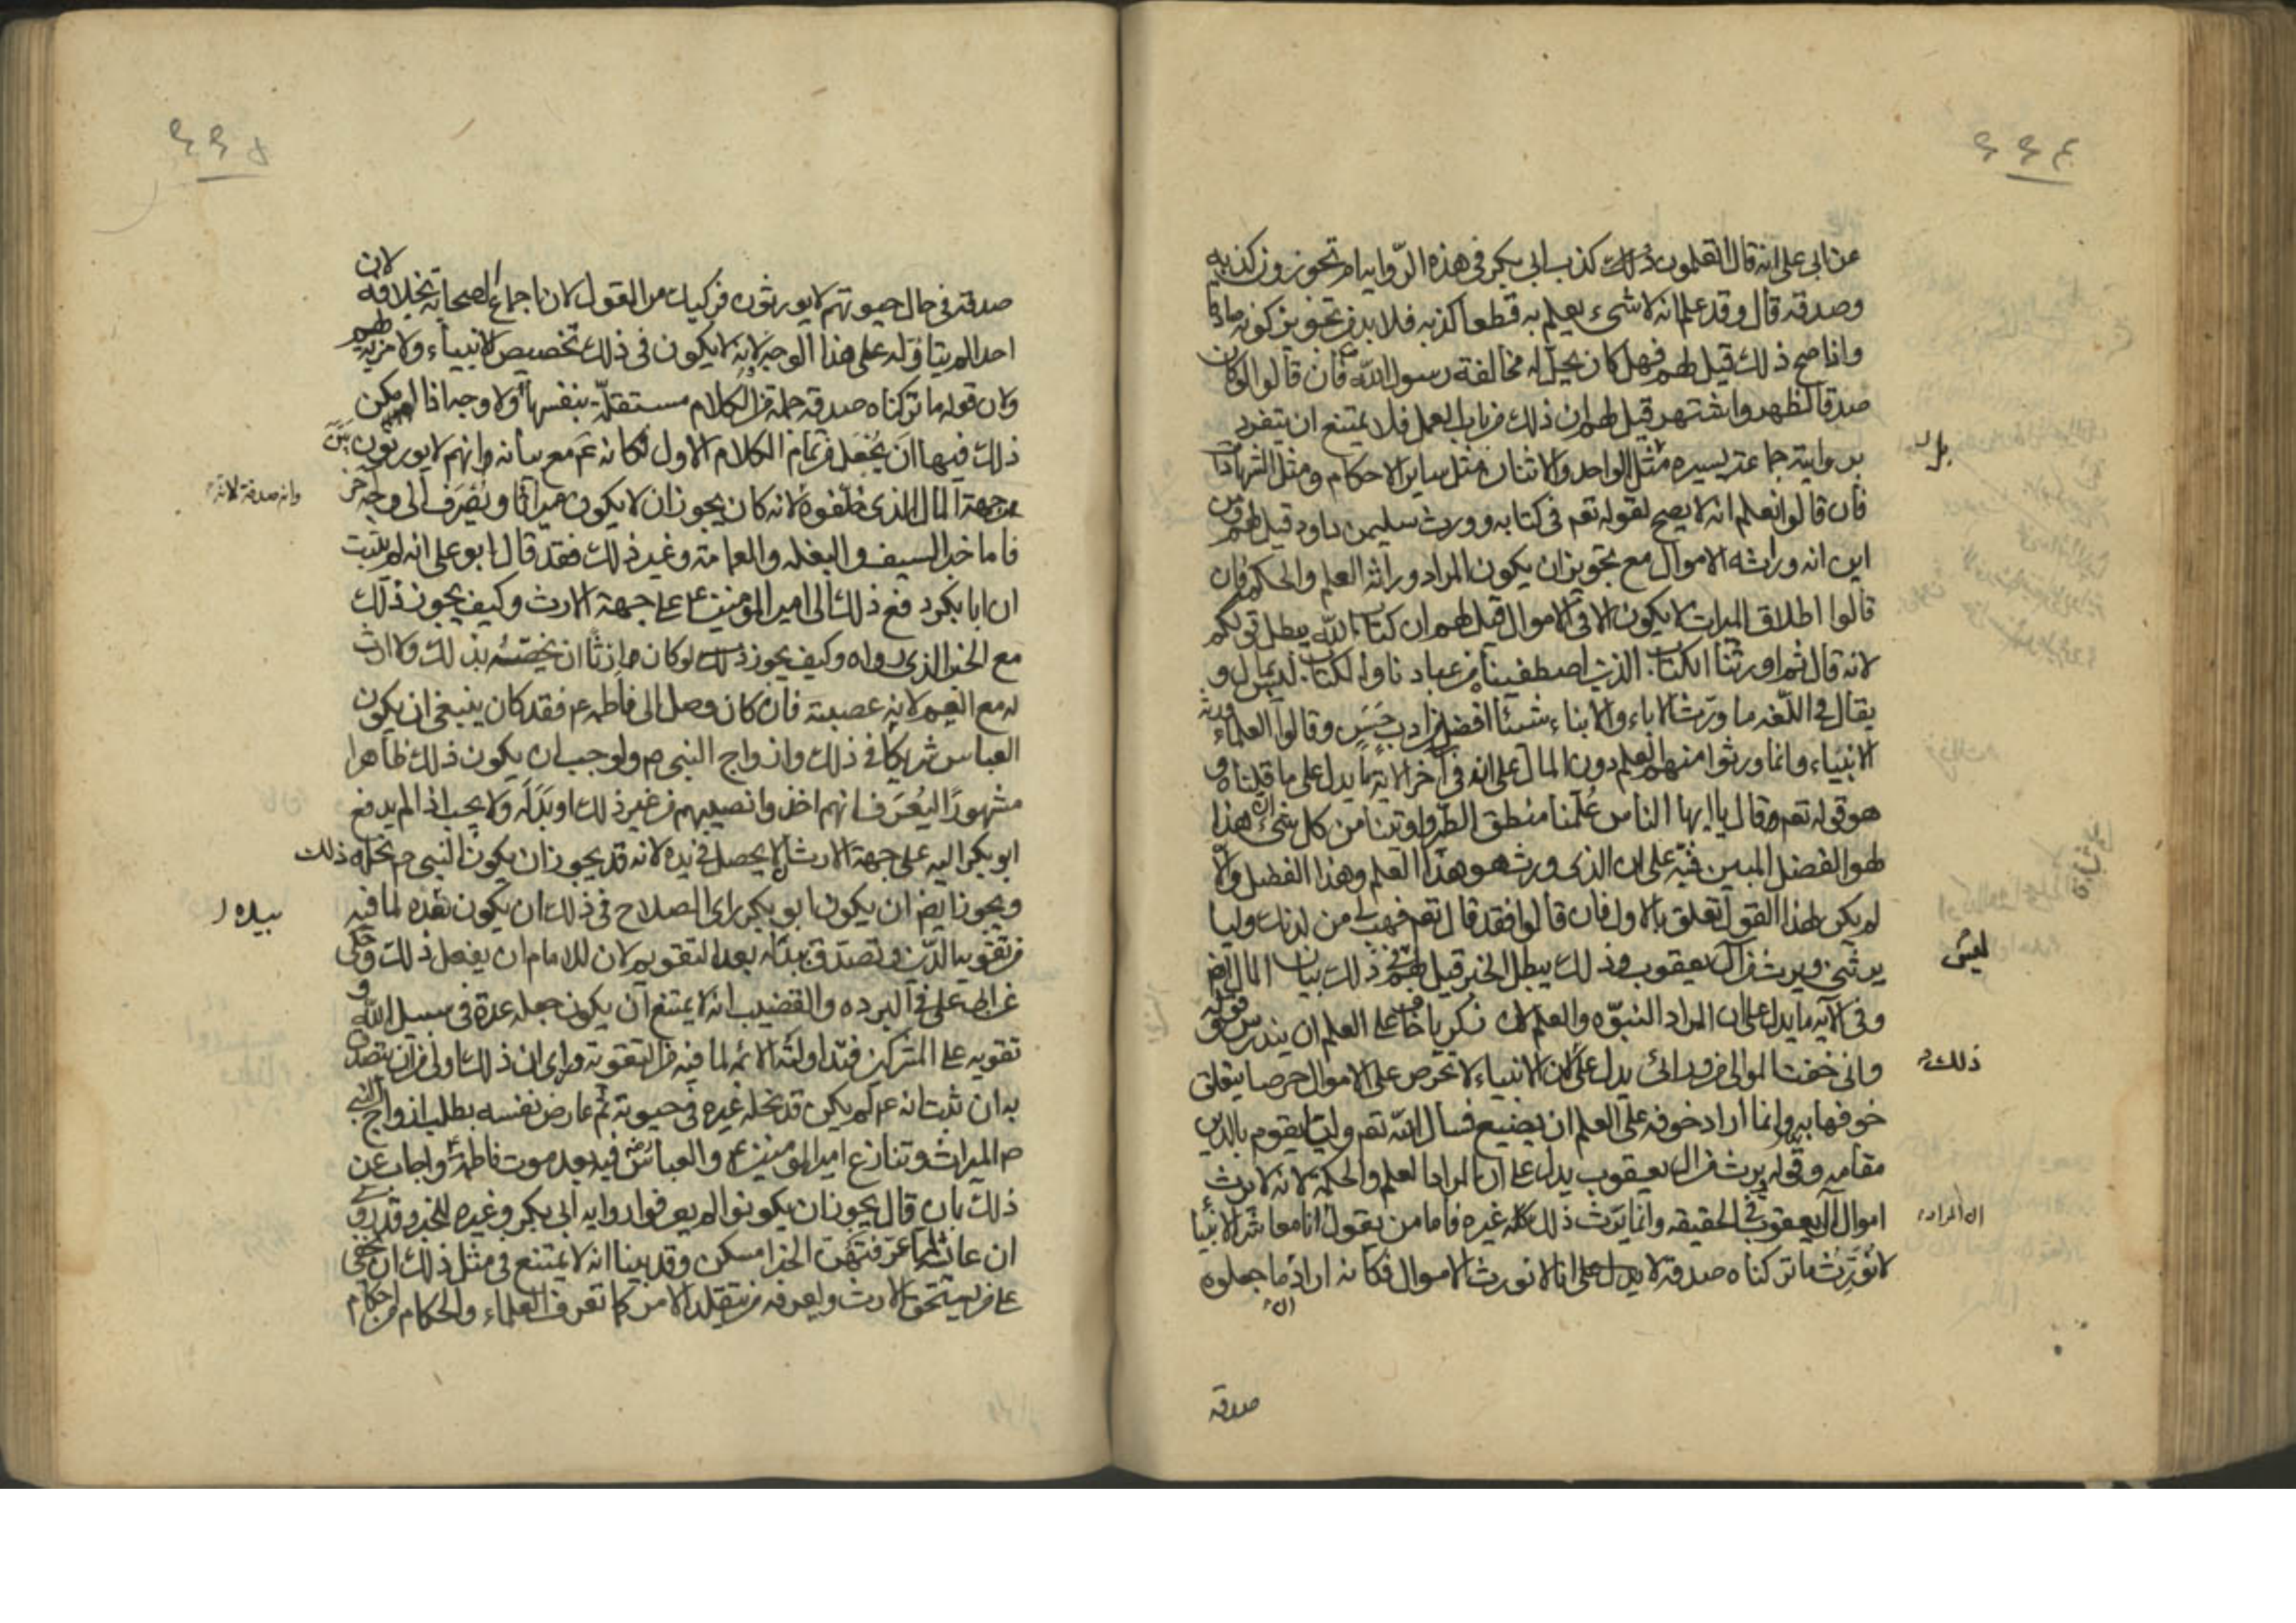 ٢٢٤
عن ابي علي انه قال اتعلمون ذلك كذب ابي بكر في هذه الرواية ام تجوزون كذبه
وصدقه قال وقد علم انه لا شيء يعلم به قطعا كذبه فلا بد من تجويز كونه صادقا
واذا صح ذلك قيل لهم فهل كان يحل له مخالفة رسول الله فان قالوا لو كان
صدقا لظهر واشتهر قيل لهم ان ذلك من باب العمل فلا يمتنع ان يتفرد
بروايته جماعة يسيرة مثل الواحد والاثنان مثل ساير الاحكام ومثل الشهادات
فان قالوا نعلم انه لا يصح لقوله تعم في كتابه وورث سليمن داود قيل لهم ومن
اين انه وراثه الاموال مع تجويز ان يكون المراد وراثة العلم والحكم فان
قالوا اطلاق الميراث لا يكون الا في الاموال قيل لهم ان كتاب الله يبطل قولكم
لانه قال ثم اورثنا الكتاب الذين اصطفينا من عبادنا والكتاب ليس بمال و
يقال في اللغه ما ورثت الاباء والابناء شيئا افضل من ادب حسن وقالوا العلماء ورثه
الانبياء وانما ورثوا منهم العلم دون المال على انه في آخر الاية ما يدل على ما قلناه و
هو قوله تعم وقال يا ايها الناس علمنا منطق الطير واوتينا من كل شيء ان هذا
لهو الفضل المبين فنبه على ان الذي ورث هو هذا العلم وهذا الفضل والا
لم يكن لهذا القول تعلق بالاول فان قالوا فقد قال تعم فهب لي من لدنك وليا
يرثني ويرث من آل يعقوب وذلك يبطل الخبر قيل لهم في ذلك بيان المال ايض
وفي الآيه ما يدل على ان المراد النبوه والعلم لان زكريا خاف على العلم ان يندرس فقوله
واني خفت الموالي من ورائي يدل على ان الانبياء لا تحرص على الاموال حرصا يتعلق
خوفها به وانما اراد خوفه على العلم ان يضيع فسال الله تعم وليا يقوم بالدين
مقامه وقوله ويرث من ال يعقوب يدل على ان المراد العلم والحكمة لانه لا يرث
اموال آل يعقوب في الحقيقه وانما يرث ذلك كله غيره فاما من يقول انا معاشر الانبيا
لا نورث ما تركناه صدقه لا يدل على انا لا نورث الاموال فكانه اراد ان ما جعلوه
بل
ليس
ذلك
ان المراد
صدقه
٢٢٥
صدقة في حال حيوتهم لا يورثون فركيك من القول لان اجماع الصحابة بخلافه لان
احدا لم يتاوله على هذا الوجه لانه لا يكون في ذلك تخصيص الانبياء ولا مزية لهم
ولان قوله ما تركناه صدقه جملة من الكلام مستقلة بنفسها ولا وجه اذا لم يكن
ذلك فيها ان يجعل من تمام الكلام الاول فكانه عم مع بيانه وانهم لا يورثون بين
من جهة المال الذي خلفوه لانه كان يجوز ان لا يكون ميراثا ويصرف الى وجه آخر
فاما خبر السيف والبغله والعمامة وغير ذلك فقد قال ابو علي انه لم يثبت
ان ابا بكر دفع ذلك الى امير المؤمنين ع على جهة الارث وكيف يجوز ذلك
مع الخبر الذي رواه وكيف يجوز ذلك لو كان وارثا ان يخصه بذلك ولا ارث
له مع العم لانه عصبته فان كان وصل الى فاطمه ع فقد كان ينبغي ان يكون
العباس شريكا في ذلك وازواج النبي ص ولوجب ان يكون ذلك ظاهرا
مشهورا ليعرف انهم اخذوا نصيبهم من غير ذلك او بدله ولا يجب اذا لم يدفع
ابو بكر اليه على جهة الارث الا يحصل في يده لانه قد يجوز ان يكون النبي ص نحله ذلك
ويجوز ايض ان يكون ابو بكر راى الصلاح في ذلك ان يكون بيده لما فيه
من تقوية الدين وتصدق ببدله بعد التقويم لان للامام ان يفعل ذلك وحكى
عن ابي علي في البرده والقضيب انه لا يمتنع ان يكون جعله عدة في سبيل الله و
تقويه على المشركين فتداولته الائمه لما فيه من التقوية وراى ان ذلك اولى من ان يتصدق
به ان ثبت انه ع لم يكن قد نحله غيره في حيوته ثم عارض نفسه بطلب ازواج النبي
ص الميراث وتنازع امير المؤمنين ع والعباس فيه بعد موت فاطمة ع واجاب عن
ذلك بان قال يجوز ان يكونوا لم يعرفوا رواية ابي بكر وغيره للخبر وقد روي
ان عائشة لما عرفتهن الخبر امسكن وقد بينا انه لا يمتنع في مثل ذلك ان يخفى
على من يستحق الارث ويعرفه من يتقلد الامر كما تعرف العلماء والحكام من احكام
وانه صدقة لانه
بيده